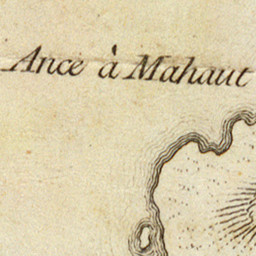 Ance à Mahaut